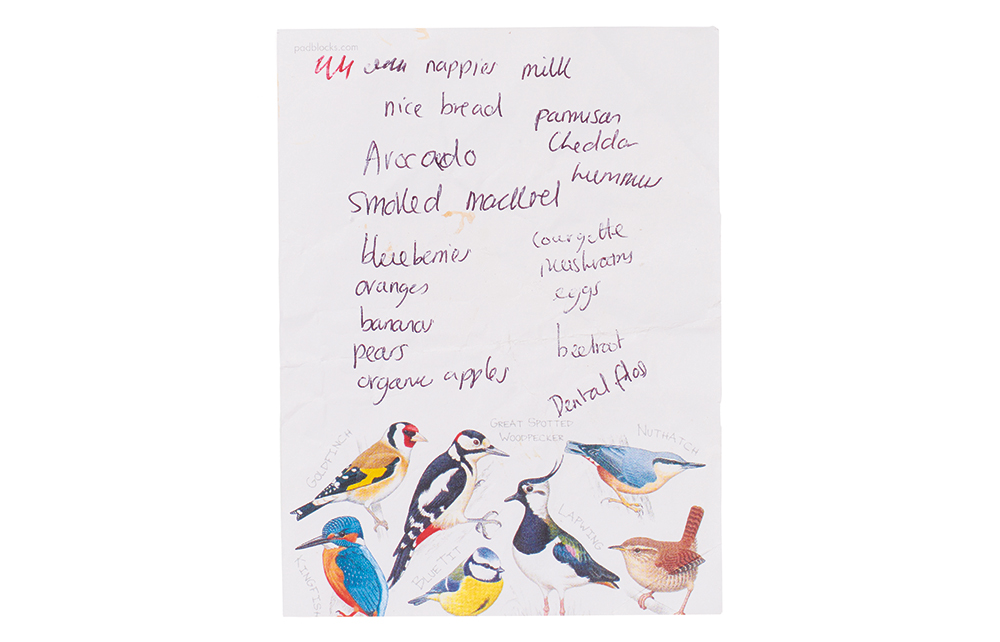 padblocks.com
nappies milk
nice bread
parmusan
Cheddar
Avocado
hummus
Smoked mackrel
blueberries
courgette
oranges
mushrooms
eggs
bananas
pears
beetroot
organic apples
Dental flos
GREAT SPOTTED
WOODPECKER
GOLDFINCH
NUTHATCH
LAPWING
BLUE TIT
KINGFISH